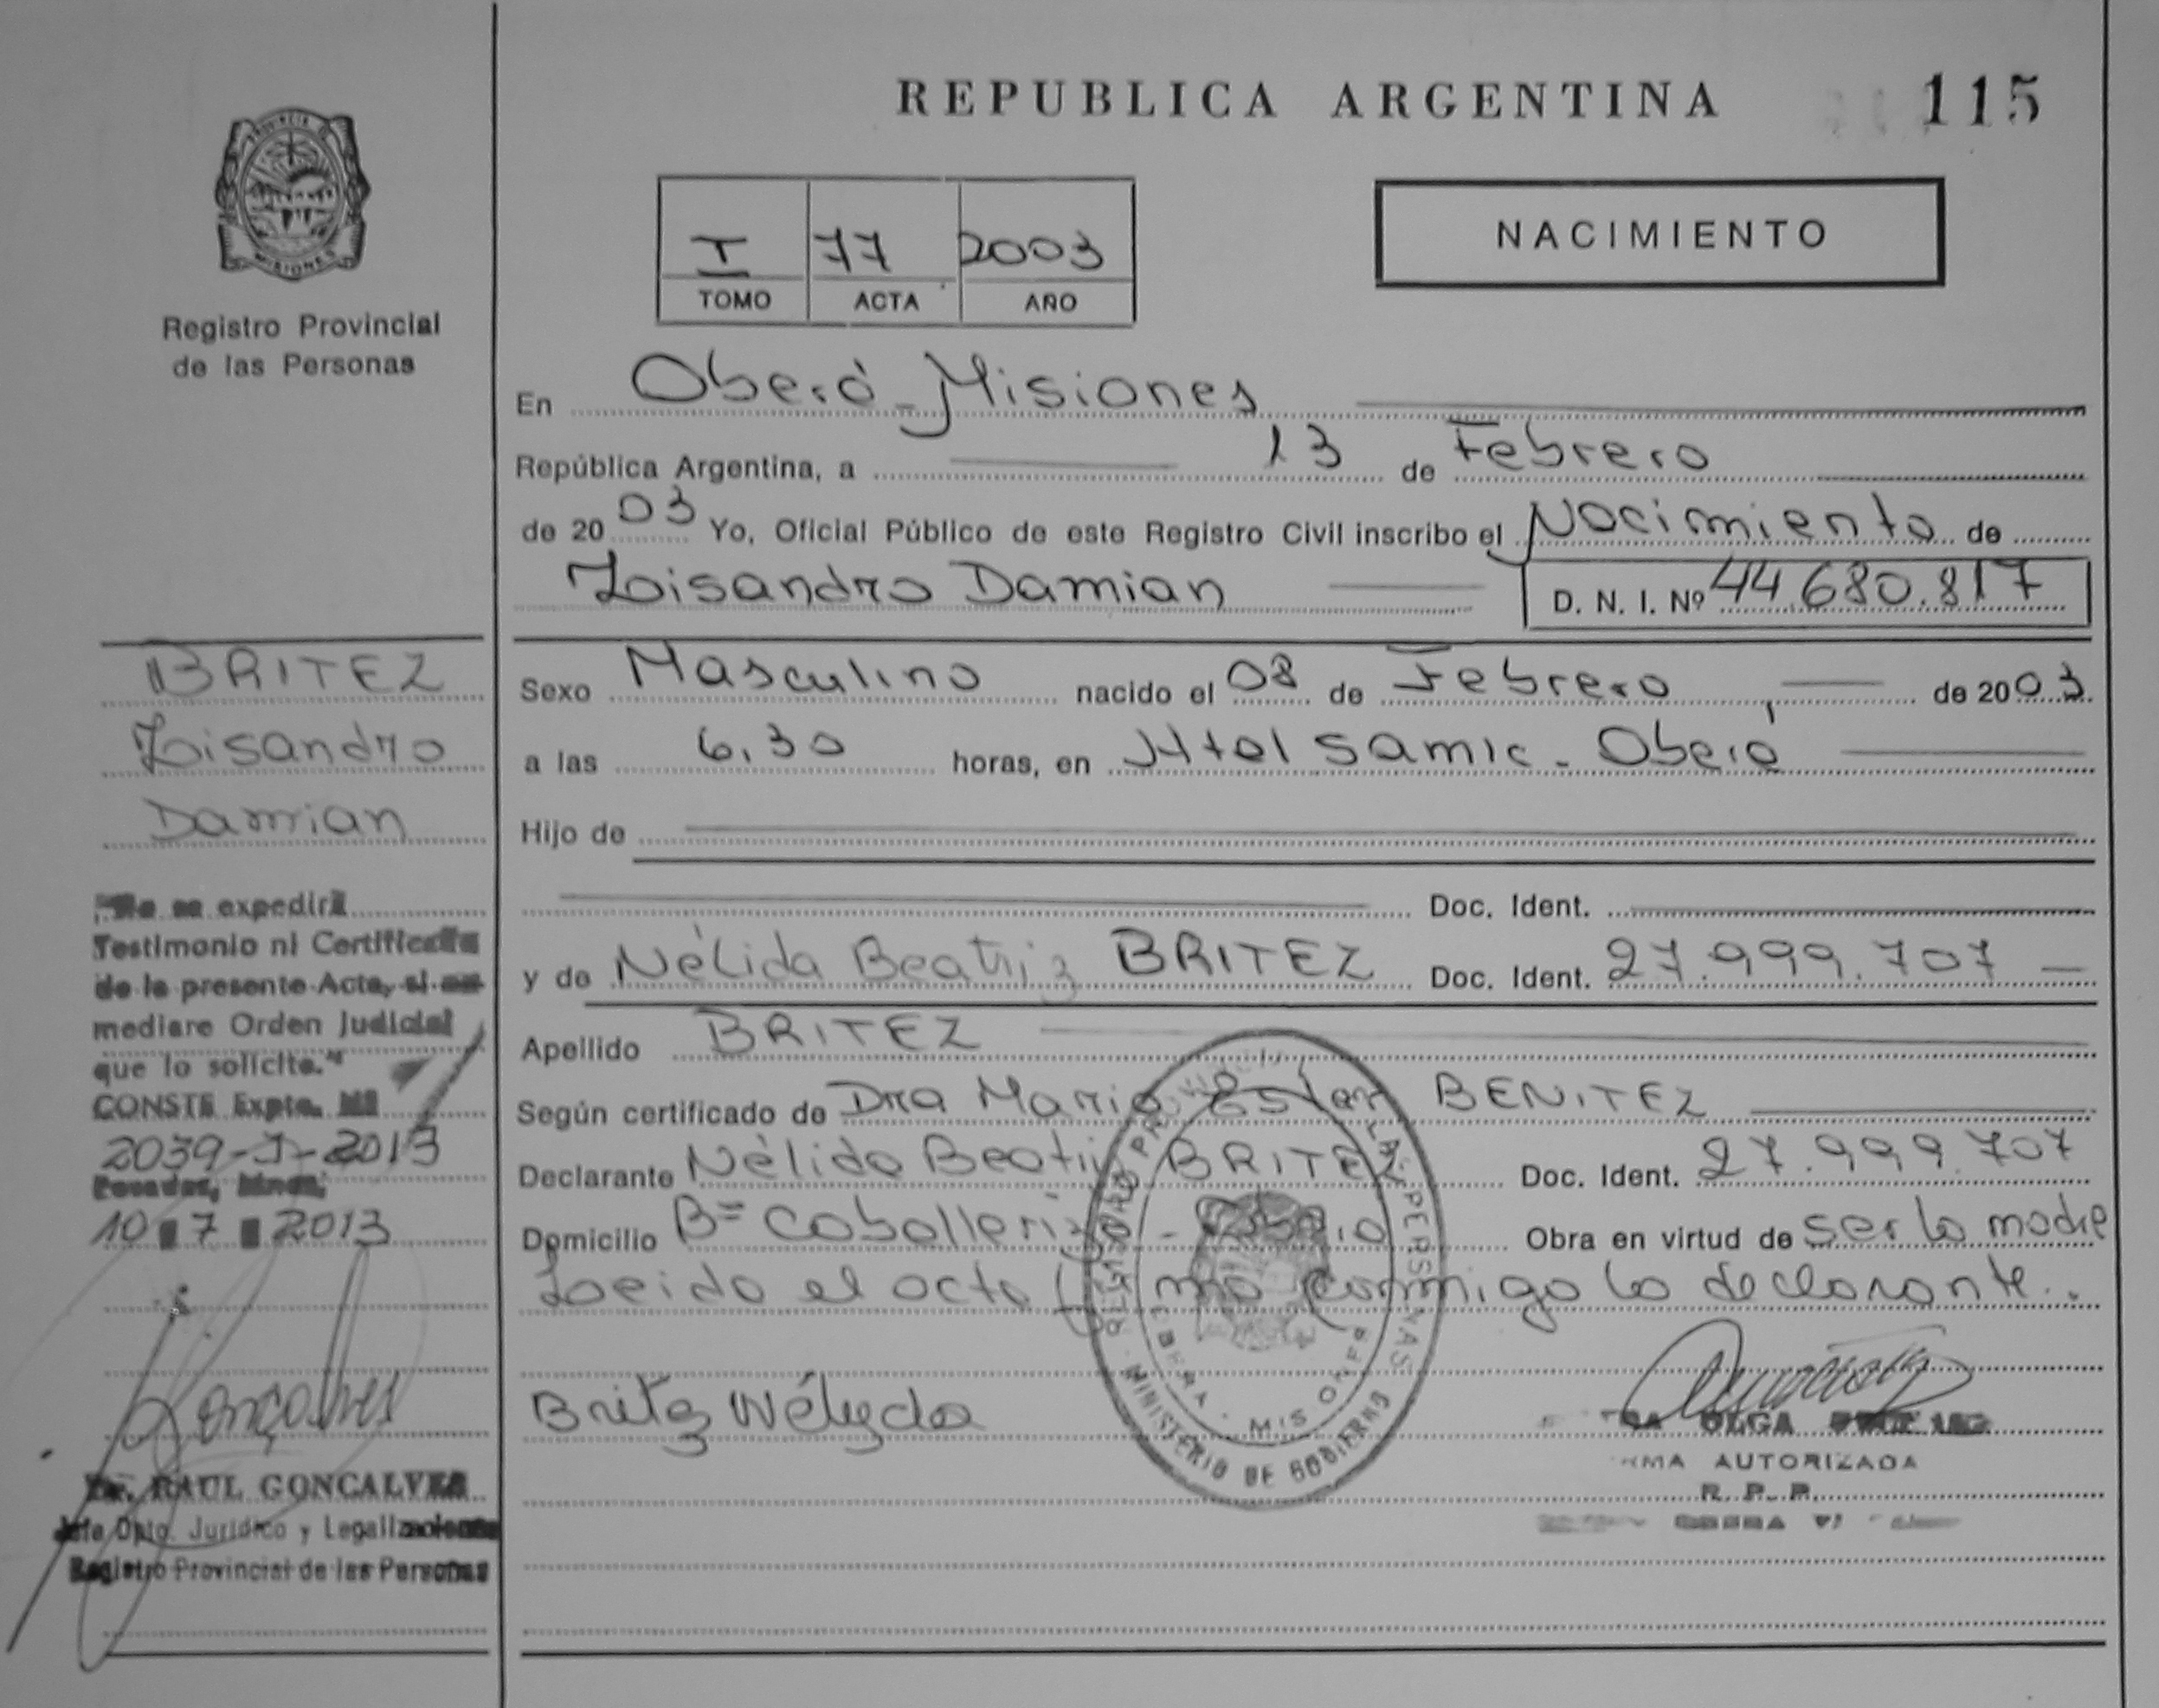 REPUBLICA ARGENTINA 115
PROVINCIA DE
MISIONES
Registro Provincial
de las Personas
I 77 2003
TOMO ACTA AÑO
NACIMIENTO
En Oberá - Misiones
República Argentina, a 13 de Febrero
de 2003 Yo, Oficial Público de este Registro Civil inscribo el Nacimiento de
Lisandro Damian D. N. I. Nº 44.680.817
Sexo Masculino nacido el 08 de Febrero de 2003
a las 6,30 horas, en Htal Samic - Oberá
Hijo de
Doc. Ident.
y de Nélida Beatriz BRITEZ Doc. Ident. 27.999.707
Apellido BRITEZ
Según certificado de Dra Maria Ester BENITEZ
Declarante Nélida Beatriz BRITEZ Doc. Ident. 27.999.707
Domicilio Bº Caballeriza - Oberá Obra en virtud de ser la madre
Leída el acta firma conmigo la declarante.
Britez Nélyda
OLGA
AUTORIZADA
R. P. P.
MINISTERIO DE GOBIERNO
BRITEZ
Lisandro
Damian
"No se expedirá
Testimonio ni Certificado
de la presente Acta, si no
mediare Orden Judicial
que lo solicite."
CONSTE Expte. Nº
2039-J-2013
Posadas, Mnes,
10 7 2013
Gonçalves
Dr. RAUL GONCALVES
Jefe Dpto. Jurídico y Legalizaciones
Registro Provincial de las Personas